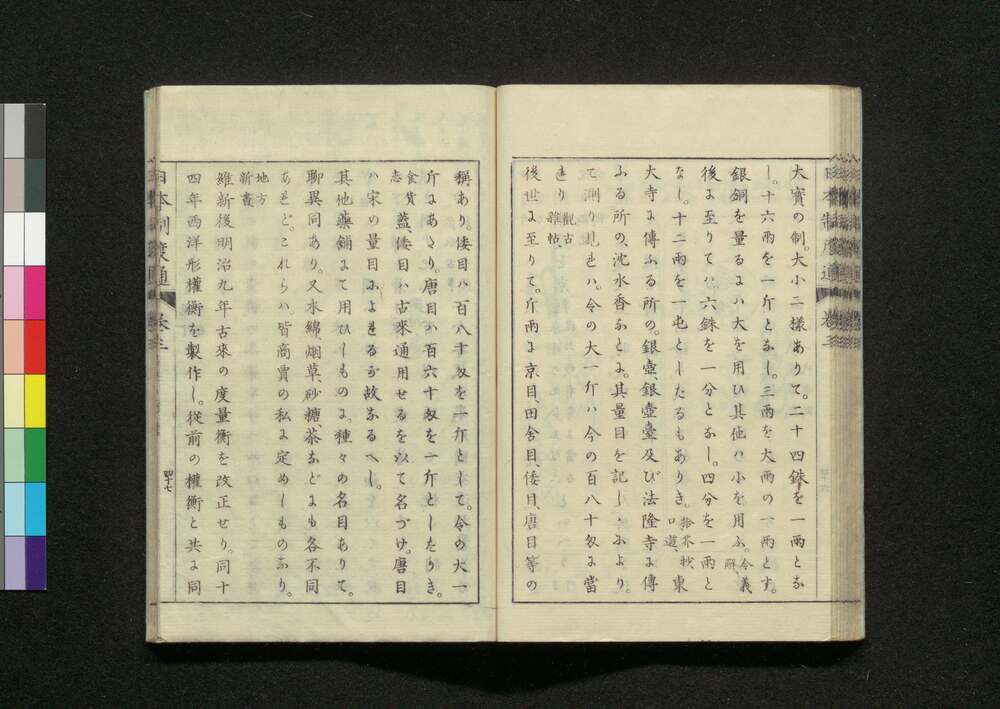 大寳の制。大小二樣ありて。二十四銖を一兩とな
し。十六兩を一斤となし。三兩を大兩の一兩とす。
銀銅を量るにハ大を用ひ其他ハ小を用ふ。令義解、
後に至りてハ六銖を一分となし。四分を一兩と
なし。十二兩を一屯としたるもありき。拾芥抄口遊、東
大寺に傳ふる所の。銀壺、銀壺臺及び法隆寺に傳
ふる所の、沈水香などに。其量目を記しあふより。
て測り見れハ。令の大一斤ハ今の百八十匁に當
れり觀古雜帖、
後世に至りて。斤兩に京目、田舍目、倭目、唐目等の
稱あり。倭目ハ百八十匁を一斤として。令の大一
斤にあたり。唐目ハ百六十匁を一斤としたりき。
食貨志 蓋、倭目ハ古來通用せるを以て名づけ。唐目
ハ宋の量目によれるが故なるべし。
其他藥舖にて用ひしものよ。種々の名目ありて。
聊異同あり。又水綿、烟草、砂糖、茶などにも各不同
あれど。これらハ皆商賈の私に定めしものなり。
地方新書
維新後明治九年古來の度量衡を改正せり。同十
四年西洋形權衡を製作し。從前の權衡と共に同
日本制度通 卷三
四十七
日本制度通 卷三